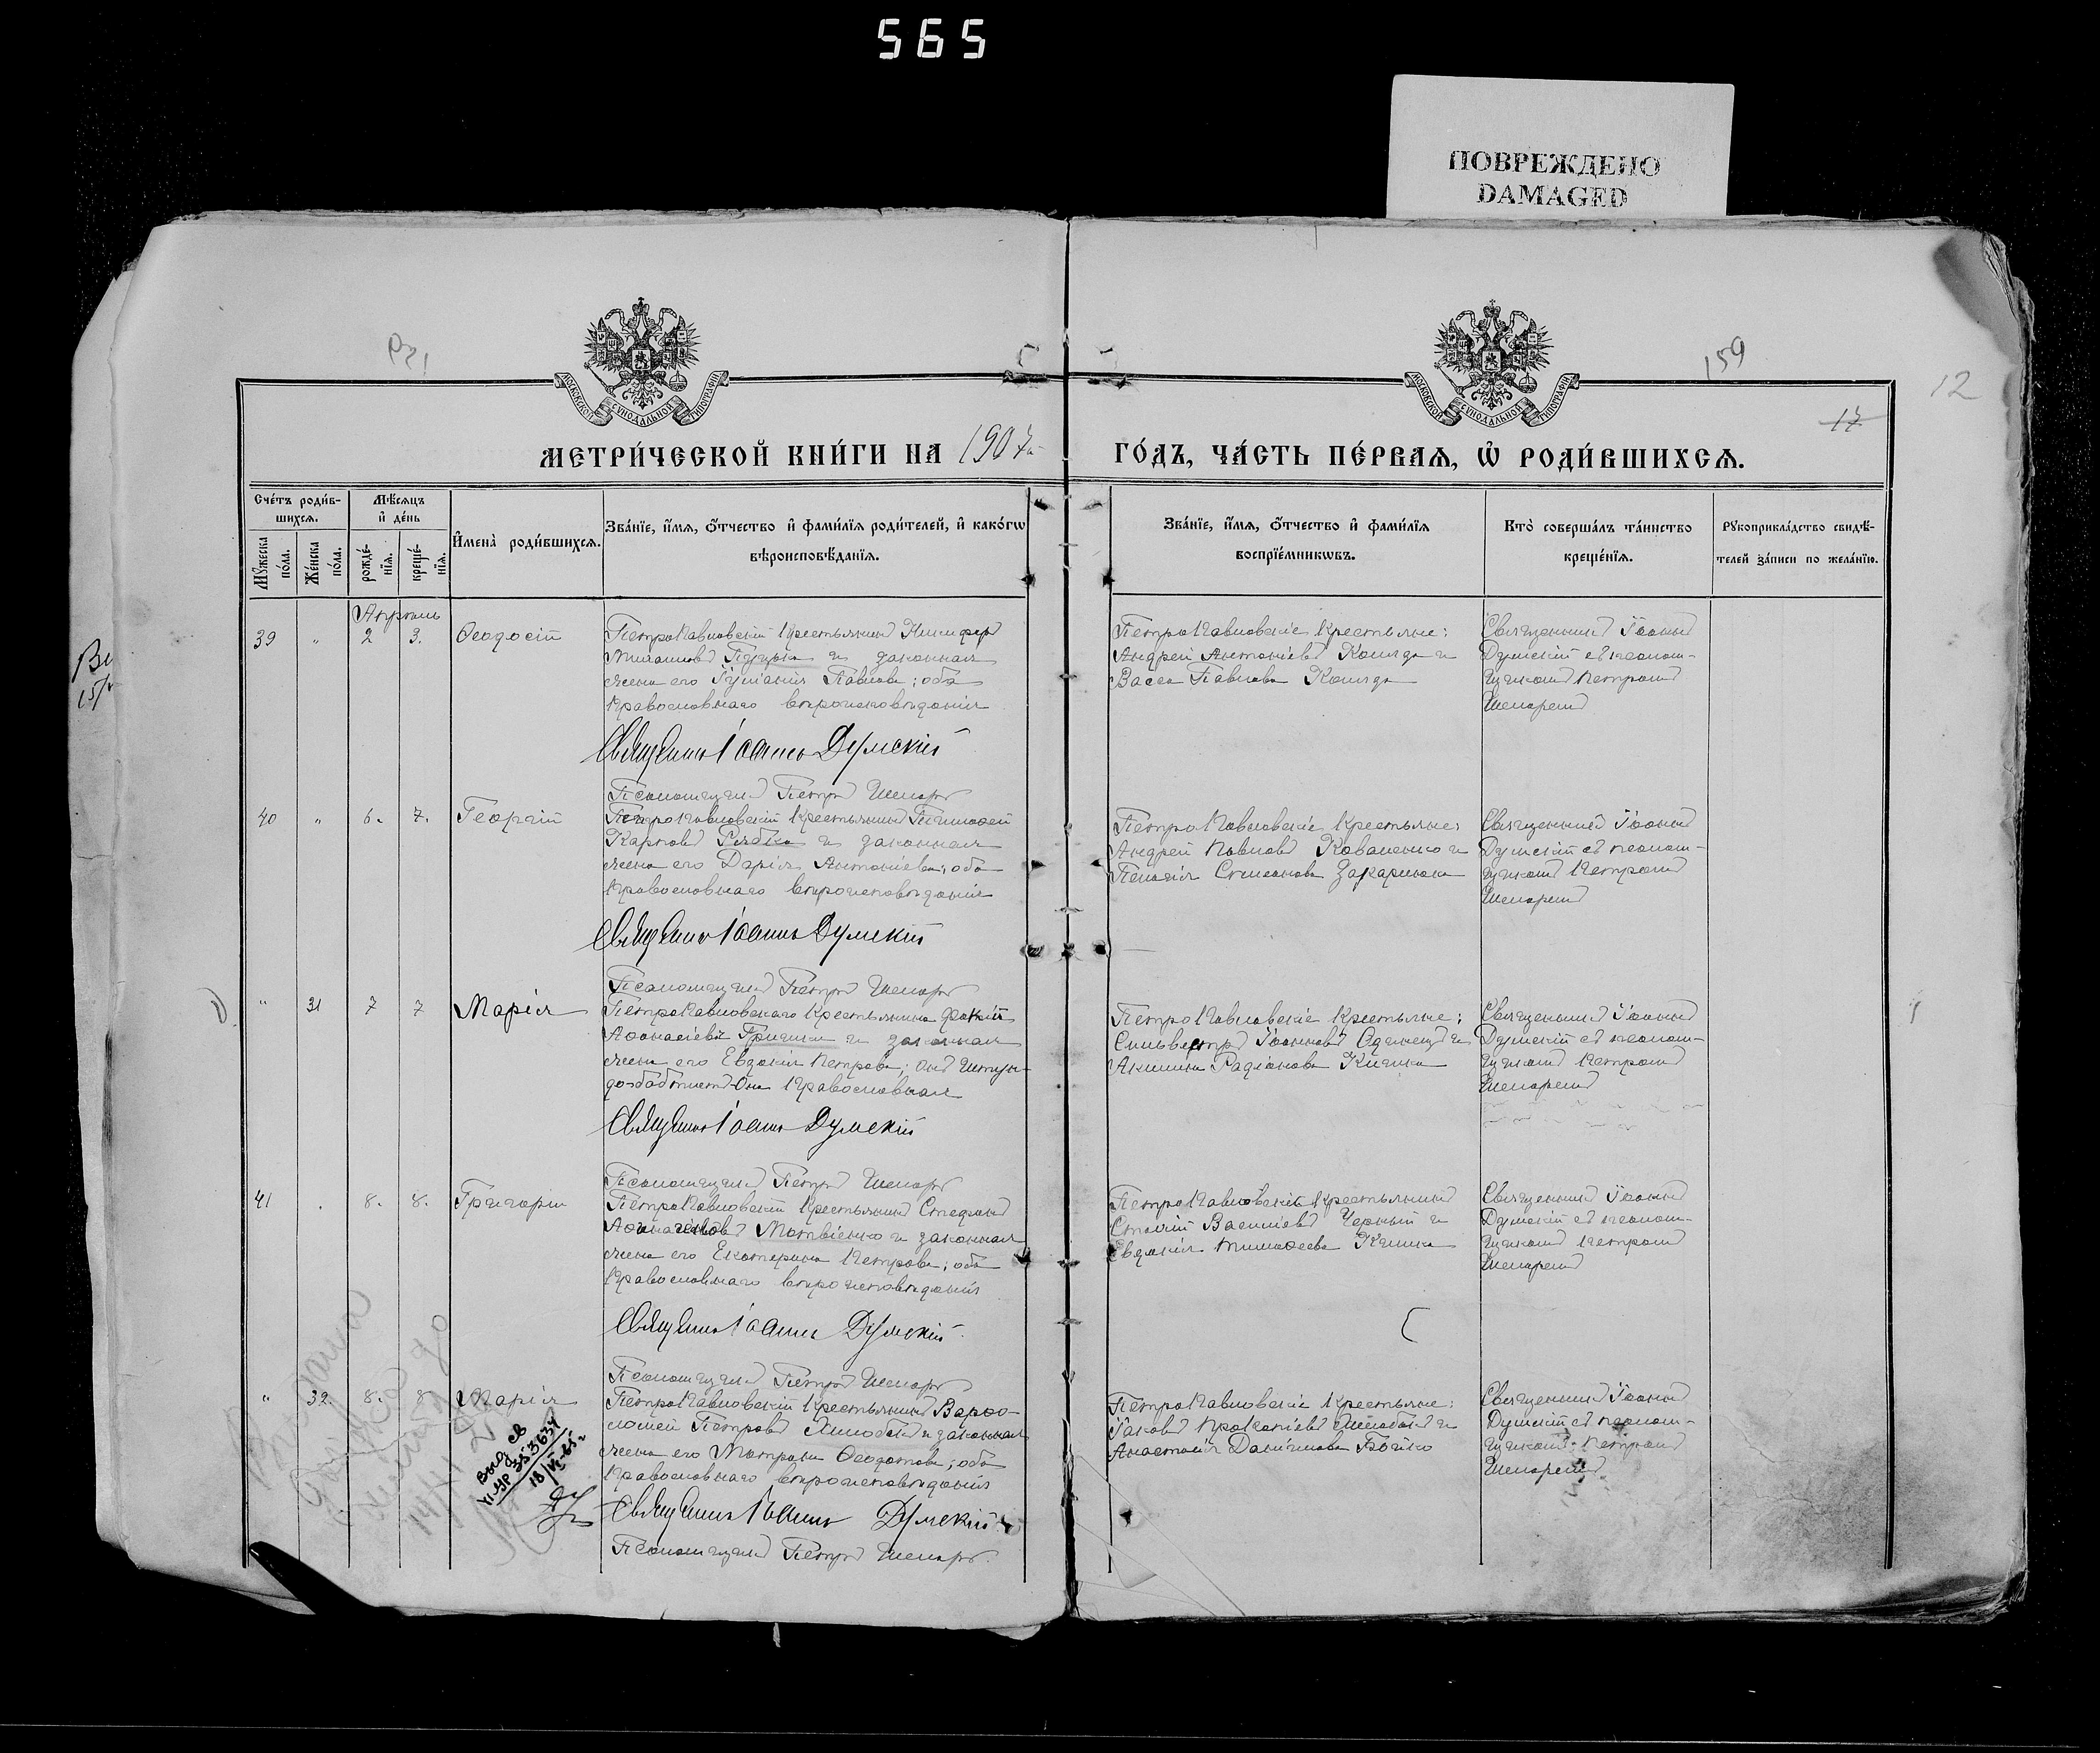 565
ПОВРЕЖДЕНО
DAMAGED
159
12
17
МОСКОВСКОЙ СѴНОДАЛЬНОЙ ТИПОГРАФІИ
МОСКОВСКОЙ СѴНОДАЛЬНОЙ ТИПОГРАФІИ
МЕТРИ́ЧЕСКОЙ КНИ́ГИ НА 1907 ГО́ДЪ, ЧА́СТЬ ПЕ́РВАЯ, Ѽ РОДИ́ВШИХСЯ.
Сче́тъ роди́в-
шихся.
Мѣ́сяцъ
и҆ де́нь
Мꙋ́жеска по́ла.
Же́нска по́ла.
рожде́-
нїя.
креще́-
нїя.
И҆мена̀ роди́вшихся.
Зва́нїе, и҆́мя, ѻ҆́тчество и҆ фами́лїя роди́телей, и҆ како́гѡ
вѣроисповѣ́данїя.
Зва́нїе, и҆́мя, ѻ҆́тчество и҆ фами́лїя
воспрїе́мникѡвъ.
Кто̀ соверша́лъ та́инство
креще́нїя.
Рꙋкоприкла́дство свидѣ́-
телей за́писи по жела́нїю.
Апрѣль
39 " 2 3. Ѳеодосій
ПетроПавловскій крестьянинъ Никифоръ
и законная
жена его Павлова; оба
православнаго вѣроисповѣданія
Священникъ Іоаннъ Думскій
Псаломщикъ Петръ Шепаръ
ПетроПавловскіе крестьяне:
Андрей Антоніевъ и
Васса Павлова
Священникъ Іоаннъ
Думскій съ псалом-
щикомъ Петромъ
Шепаремъ
40 " 6. 7. Георгій
ПетроПавловскій крестьянинъ Тимоѳей
Карповъ Рябко и законная
жена его Дарія Антоніева; оба
православнаго вѣроисповѣданія
Священникъ Іоаннъ Думскій
Псаломщикъ Петръ Шепаръ
ПетроПавловскіе крестьяне:
Андрей Павловъ Коваленко и
Пелагія Стефанова
Священникъ Іоаннъ
Думскій съ псалом-
щикомъ Петромъ
Шепаремъ
" 31 7 7 Марія
ПетроПавловскаго крестьянина
Аѳанасіева и законная
жена его Евдокія Петрова; онъ штун-
до-баптистъ Она православная
Священникъ Іоаннъ Думскій
Псаломщикъ Петръ Шепаръ
ПетроПавловскіе крестьяне:
Сильвестръ Іоанновъ Одинецъ и
Акилина Радіонова
Священникъ Іоаннъ
Думскій съ псалом-
щикомъ Петромъ
Шепаремъ
41 . 8. 8. Григорій
ПетроПавловскій крестьянинъ Стефанъ
Аѳанасіевъ Матвіенко и законная
жена его Екатерина Петрова; оба
православнаго вѣроисповѣданія
Священникъ Іоаннъ Думскій
Псаломщикъ Петръ Шепаръ
ПетроПавловскій крестьянинъ
Василіевъ Черный и
Евдокія Тимоѳеева
Священникъ Іоаннъ
Думскій съ псалом-
щикомъ Петромъ
Шепаремъ
" 32 8. 8 Марія
ПетроПавловскій крестьянинъ Варѳо-
ломей Петровъ и законная
жена его Матрона Ѳеодотова; оба
православнаго вѣроисповѣданія
Священникъ Іоаннъ Думскій
Псаломщикъ Петръ Шепаръ
ПетроПавловскіе крестьяне:
Іаковъ Прокопіевъ и
Анастасія Даніилова Бойко
Священникъ Іоаннъ
Думскій съ псалом-
щикомъ Петромъ
Шепаремъ